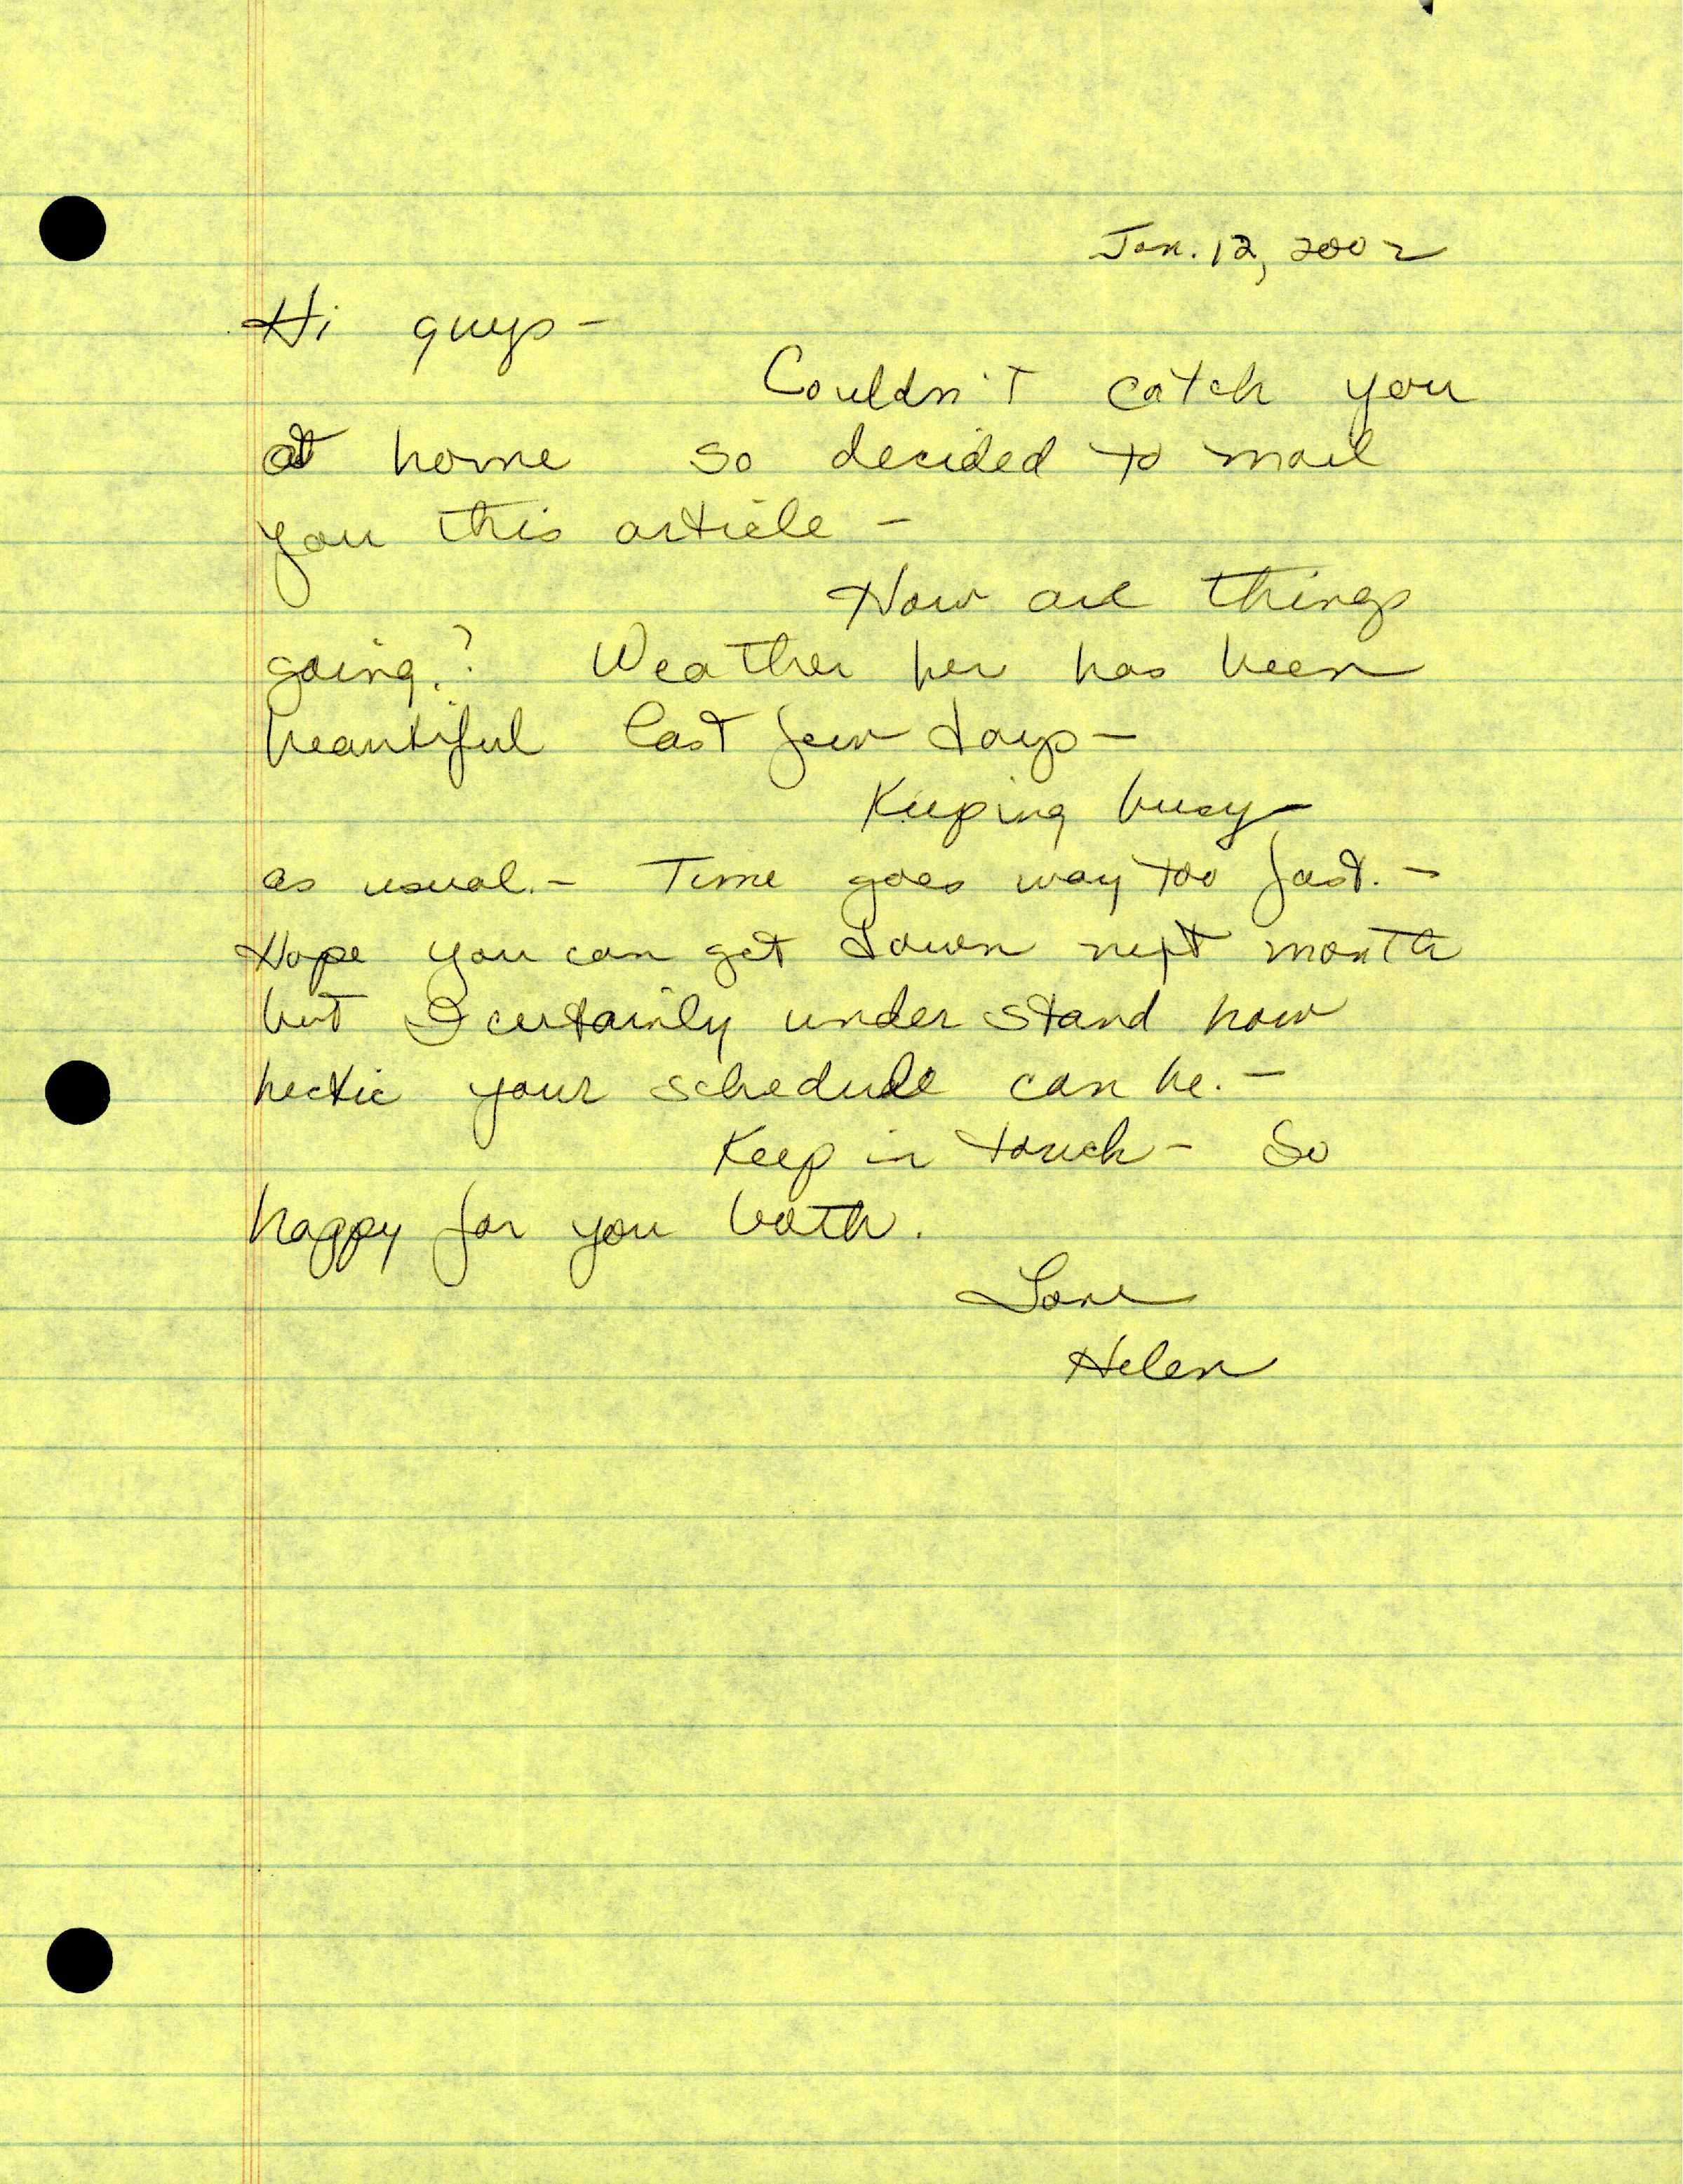 Jan. 12, 2002
Hi guys -
Couldn't catch you
at home so decided to mail
you this article -
How are things
going.? Weather her has been
beautiful last few days -
Keeping busy
as usual. - Time goes way too fast. -
Hope you can get down next month
but I certainly understand how
hectic your schedule can be. -
Keep in touch - So
happy for you both.
Love
Helen